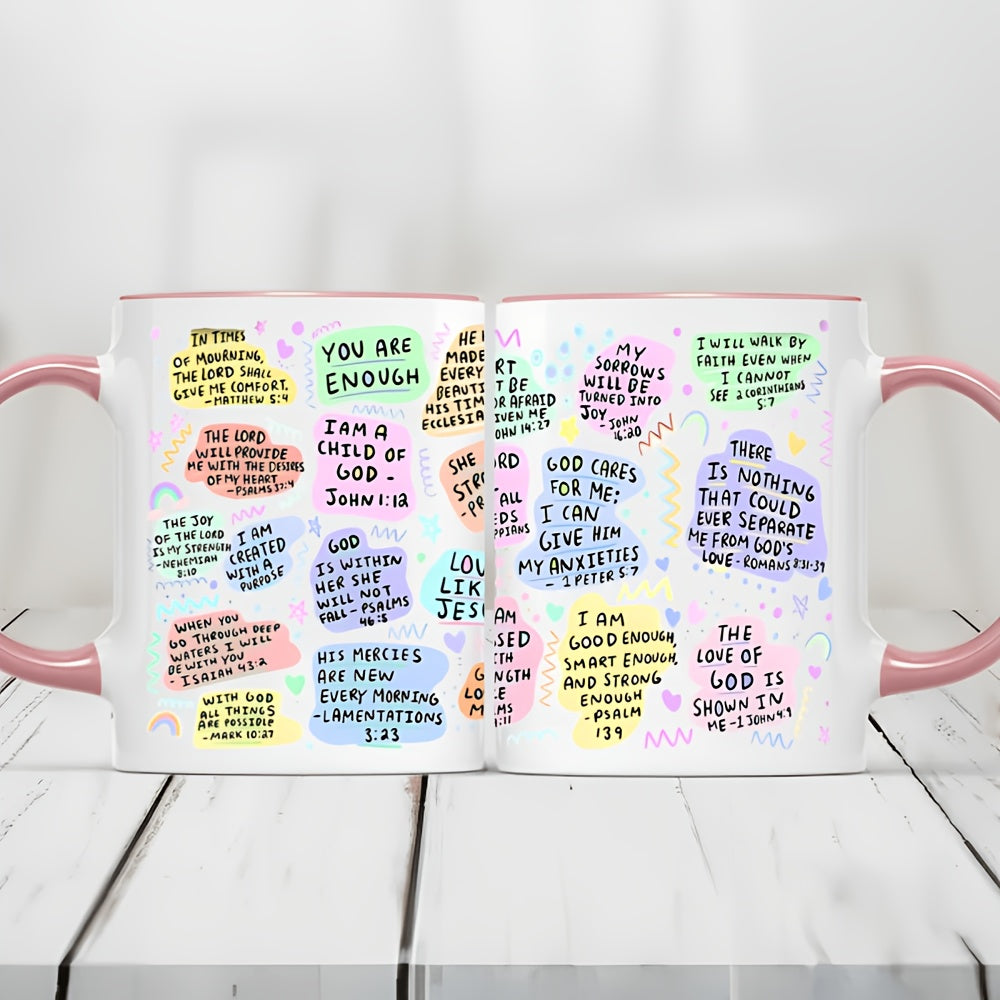 IN TIMES
OF MOURNING,
THE LORD SHALL
GIVE ME COMFORT.
- MATTHEW 5:4
YOU ARE
ENOUGH
HE
MADE
EVERY
BEAUTI
HIS TIM
ECCLESIA
THE LORD
WILL PROVIDE
ME WITH THE DESIRES
OF MY HEART
- PSALMS 37:4
I AM A
CHILD OF
GOD -
JOHN 1:12
SHE
STR
-PR
THE JOY
OF THE LORD
IS MY STRENGTH
- NEHEMIAH
8:10
I AM
CREATED
WITH A
PURPOSE
GOD
IS WITHIN
HER SHE
WILL NOT
FALL - PSALMS
46:5
LOV
LIK
JESU
WHEN YOU
GO THROUGH DEEP
WATERS I WILL
BE WITH YOU
- ISAIAH 43:2
HIS MERCIES
ARE NEW
EVERY MORNING
-LAMENTATIONS
3:23
G
LO
M
WITH GOD
ALL THINGS
ARE POSSIBLE
- MARK 10:27
RT
T BE
OR AFRAID
IVEN ME
OHN 14:27
MY
SORROWS
WILL BE
TURNED INTO
JOY - JOHN
16:20
I WILL WALK BY
FAITH EVEN WHEN
I CANNOT
SEE 2 CORINTHIANS
5:7
ORD
ALL
EDS
PPIANS
GOD CARES
FOR ME;
I CAN
GIVE HIM
MY ANXIETIES
- 1 PETER 5:7
THERE
IS NOTHING
THAT COULD
EVER SEPARATE
ME FROM GOD'S
LOVE - ROMANS 8:31-39
AM
SSED
TH
NGTH
E
MS
:11
I AM
GOOD ENOUGH,
SMART ENOUGH,
AND STRONG
ENOUGH
- PSALM
139
THE
LOVE OF
GOD IS
SHOWN IN
ME - 1 JOHN 4:9